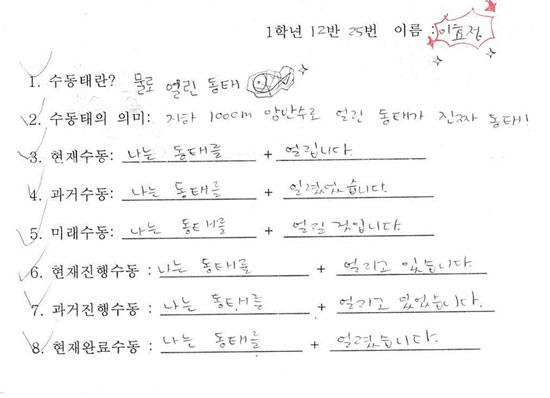 1학년 12반 25번 이름 : 이효정
1. 수동태란? 물로 얼린 동태
2. 수동태의 의미: 지하 1000m 암반수로 얼린 동태가 진짜 동태!
3. 현재수동: 나는 동태를 + 얼립니다.
4. 과거수동: 나는 동태를 + 얼렸었습니다.
5. 미래수동: 나는 동태를 + 얼릴 것입니다.
6. 현재진행수동 : 나는 동태를 + 얼리고 있습니다.
7. 과거진행수동 : 나는 동태를 + 얼리고 있었습니다.
8. 현재완료수동 : 나는 동태를 + 얼렸습니다.